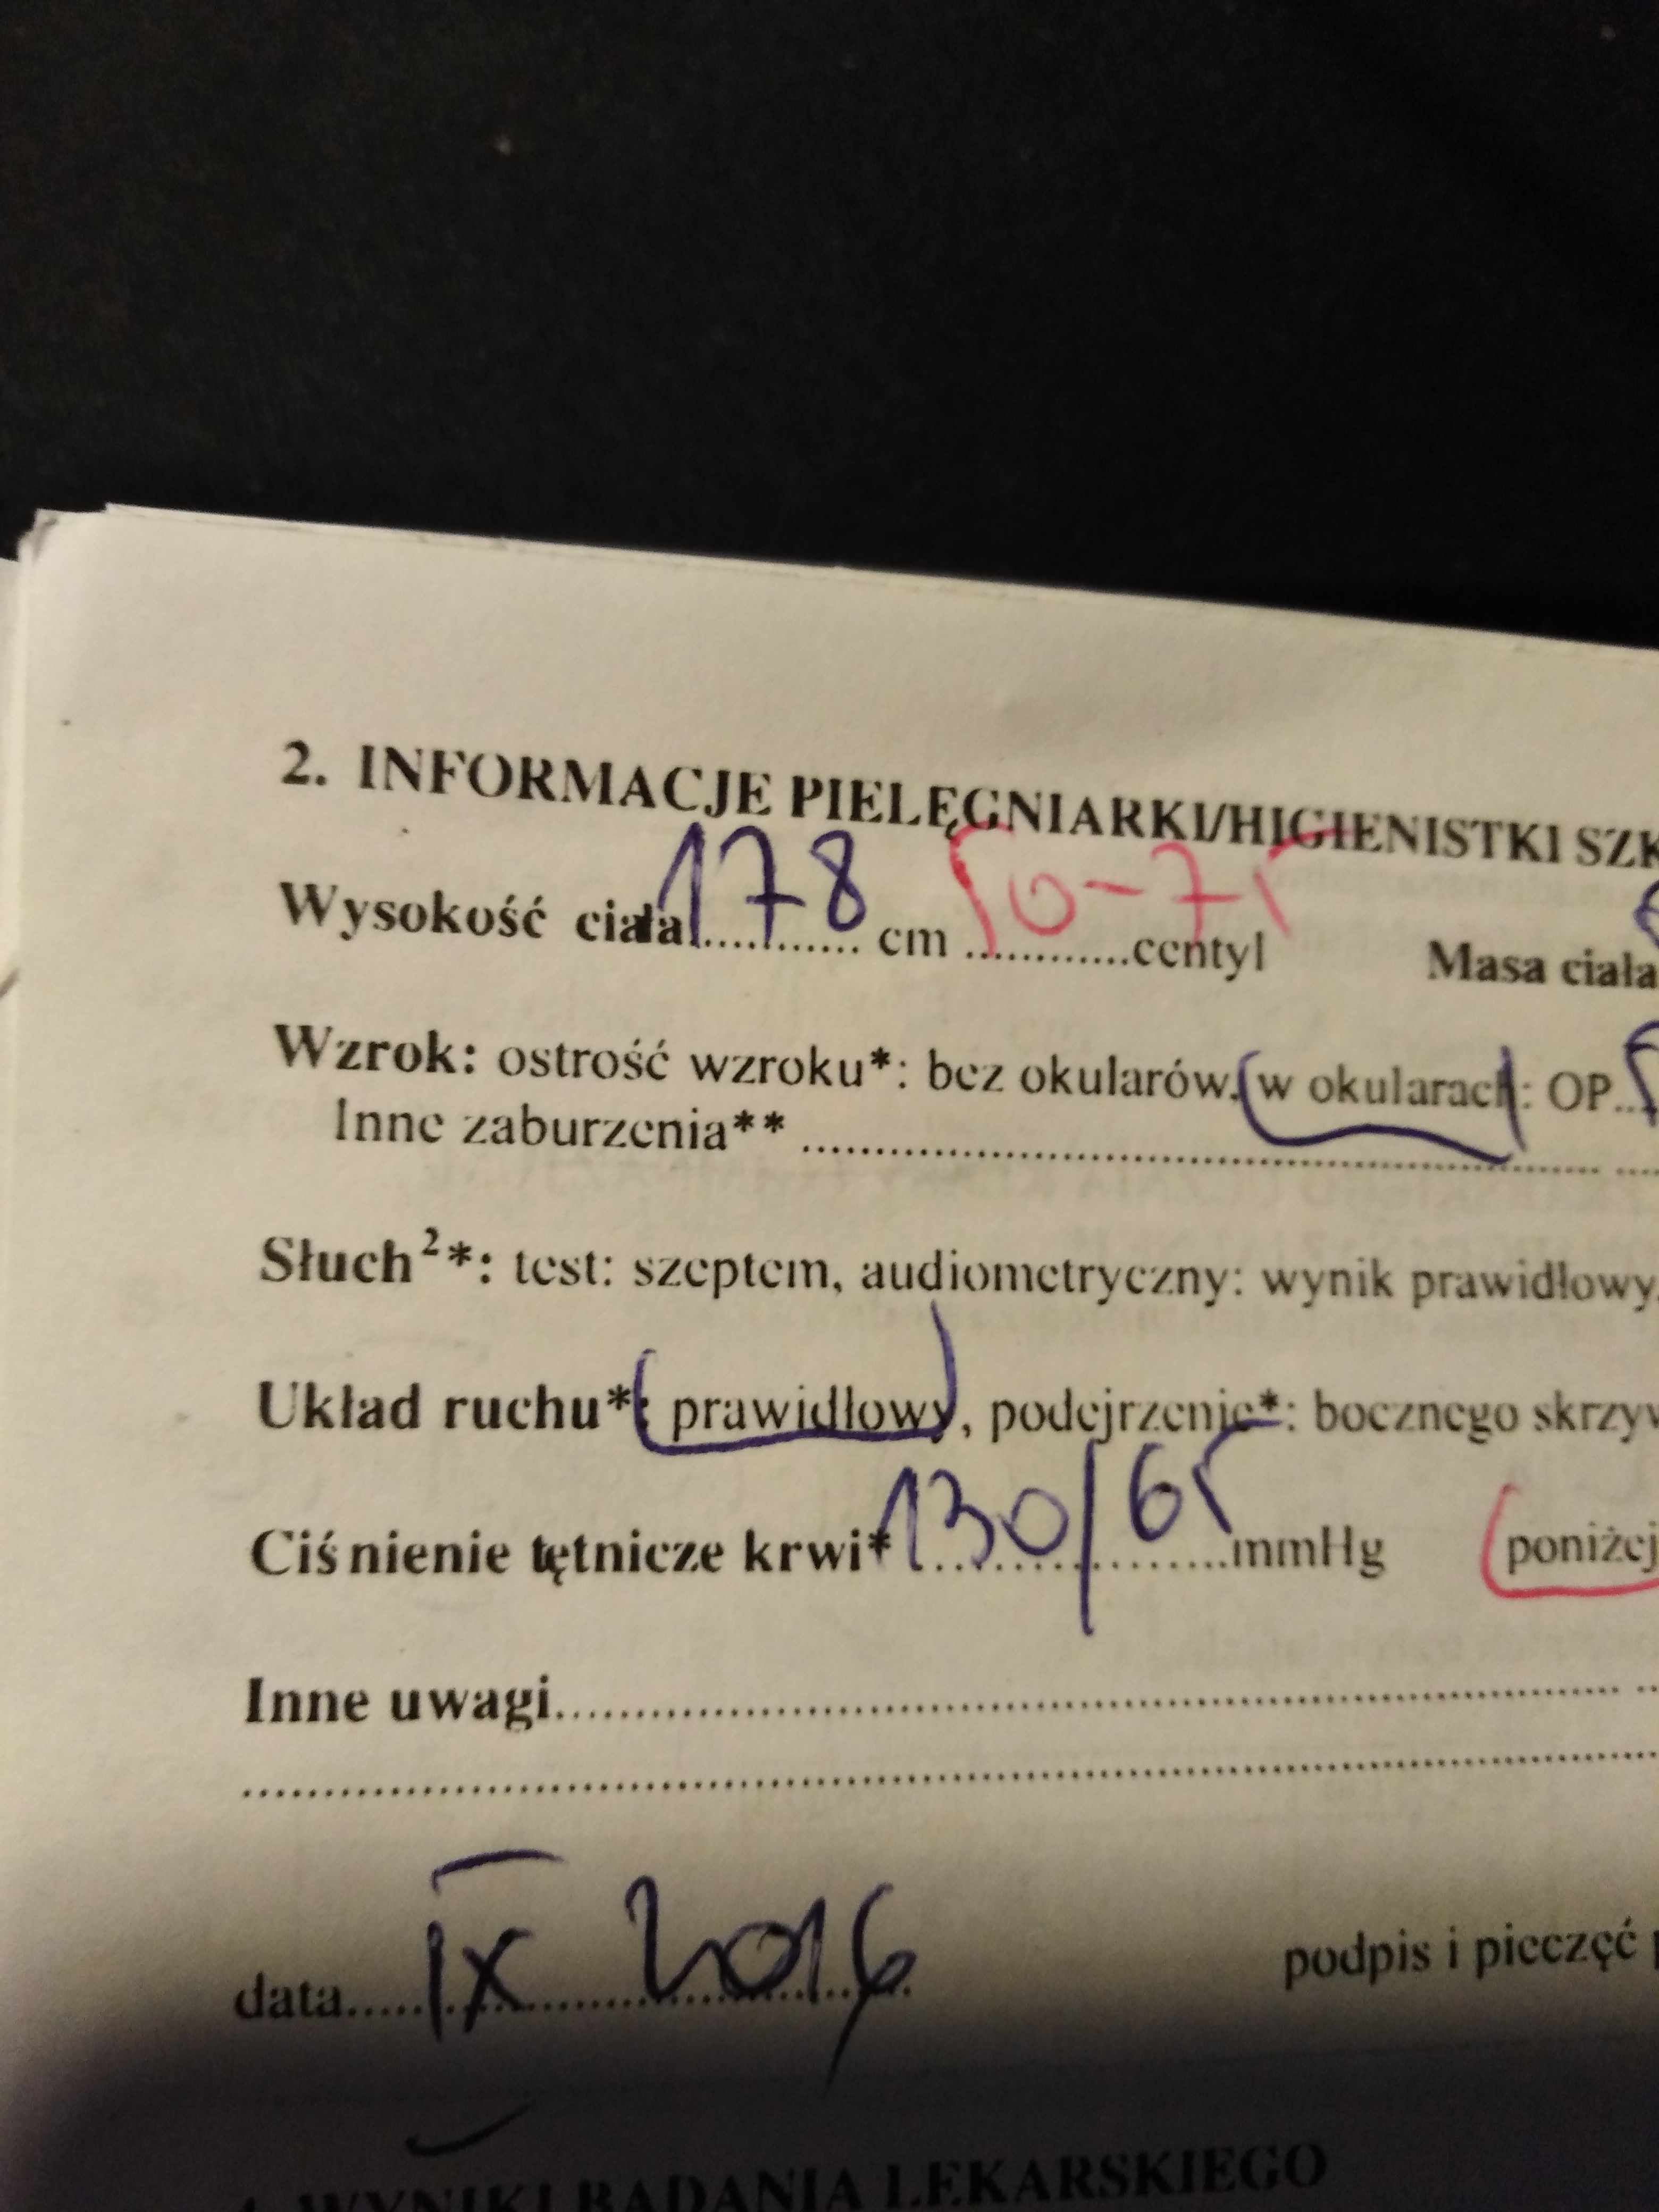 2. INFORMACJE PIELĘGNIARKI/HIGIENISTKI SZK
Wysokość ciała 178 cm 50-75 centyl Masa ciała
Wzrok: ostrość wzroku*: bez okularów, w okularach: OP
Inne zaburzenia**
Słuch²*: test: szeptem, audiometryczny: wynik prawidłowy,
Układ ruchu*: prawidłowy, podejrzenie*: bocznego skrzyw
Ciśnienie tętnicze krwi* 130/65 mmHg poniżej
Inne uwagi
data IX 2016 podpis i pieczęć p
4. WYNIKI BADANIA LEKARSKIEGO